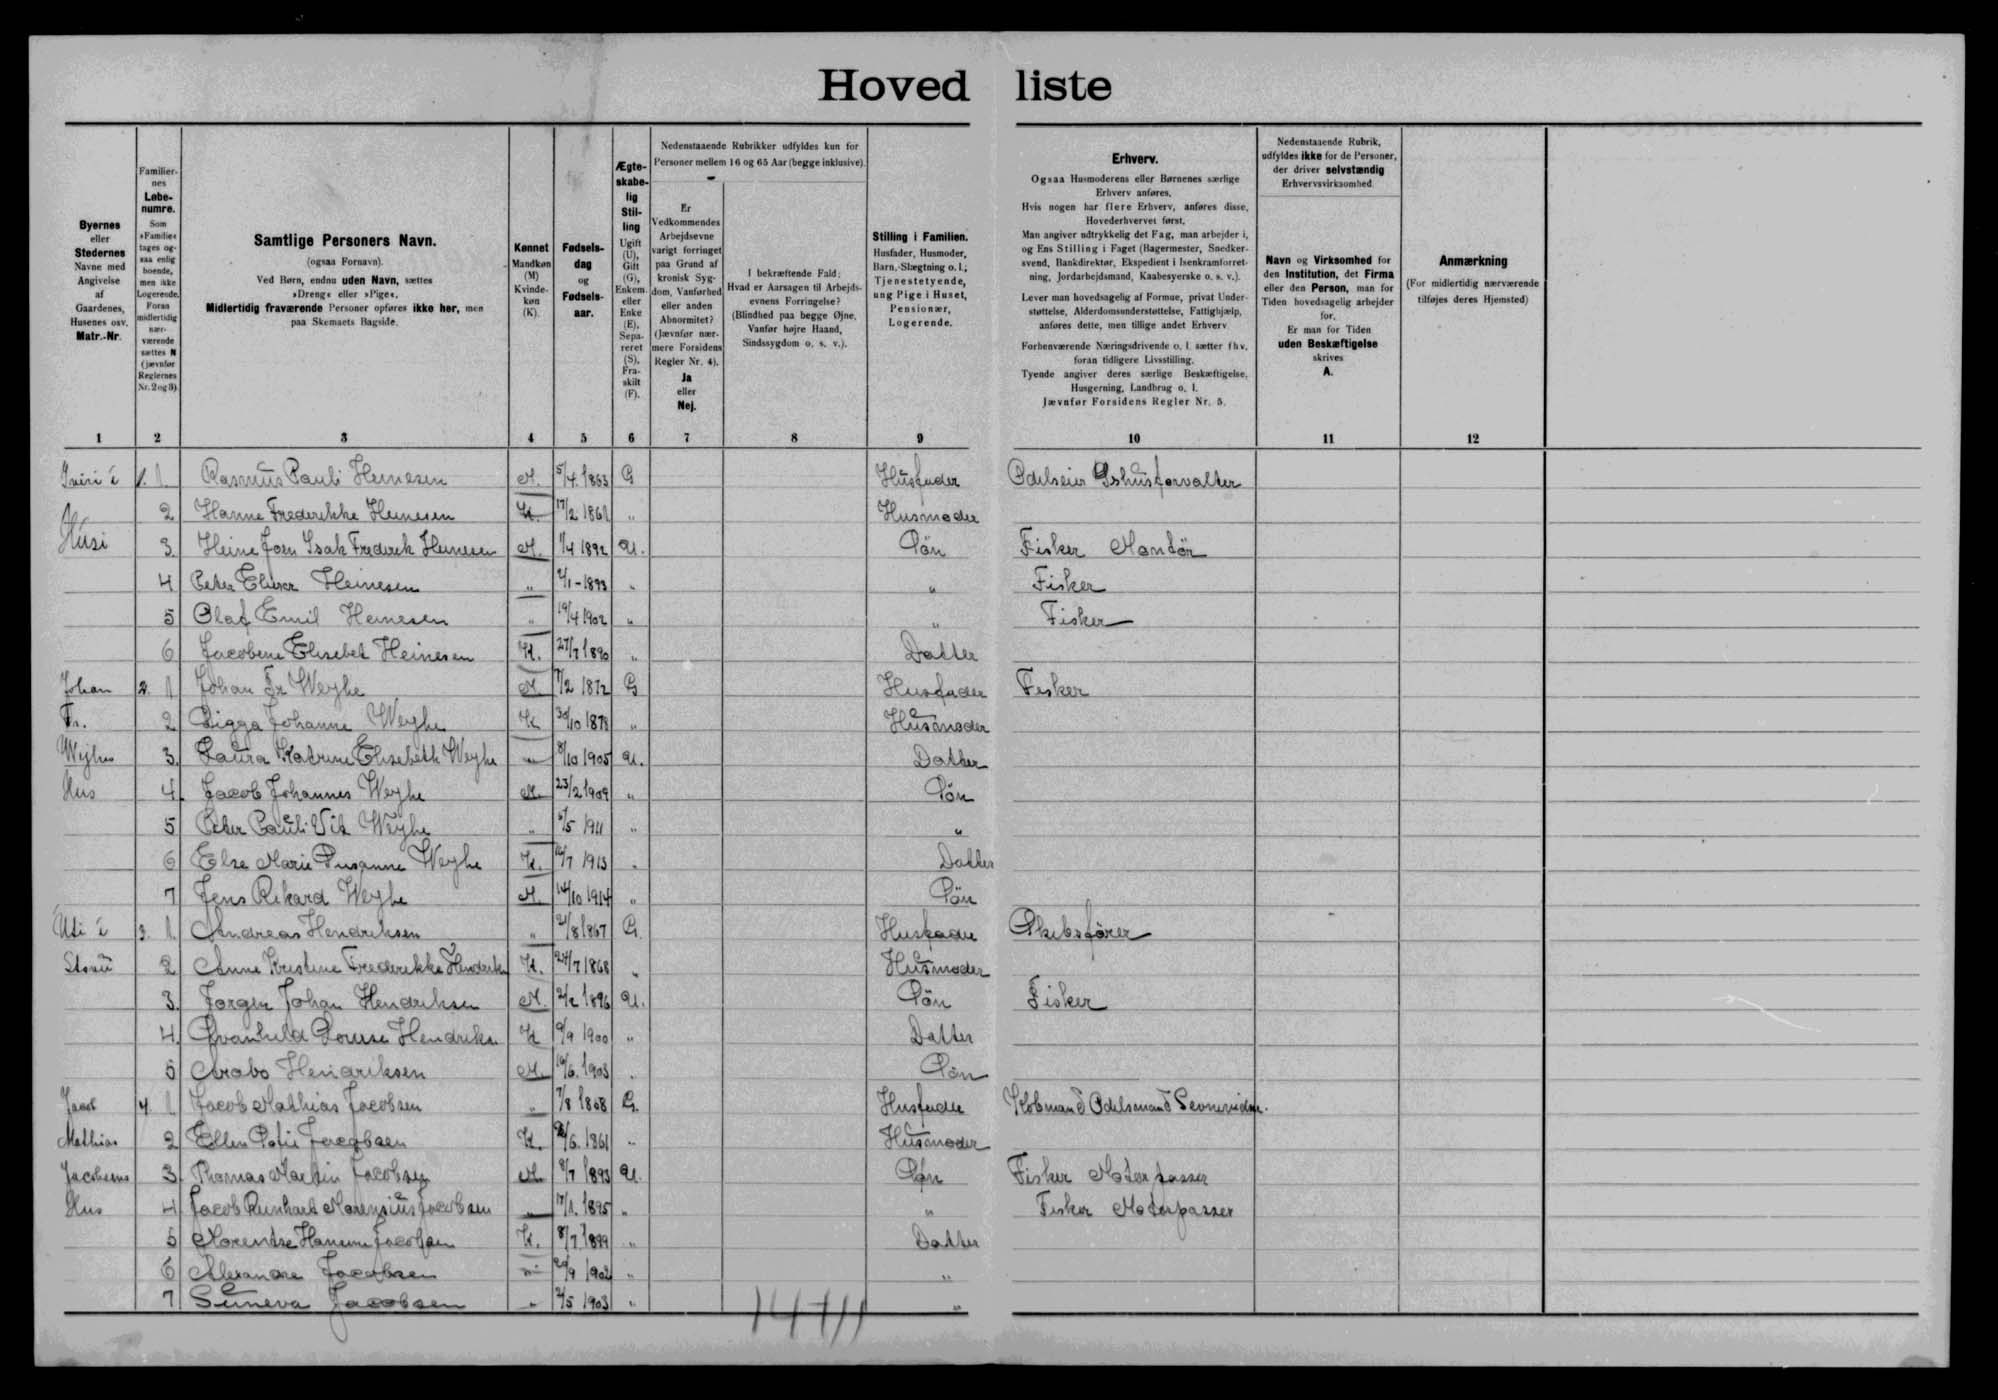 Hovedliste
Byernes
eller
Stedernes
Navne med
Angivelse
af
Gaardenes,
Husenes osv.
Matr.-Nr.
Familier-
nes
Løbe-
numre.
Som
»Familie«
tages og-
saa enlig
boende,
men ikke
Logerende.
Foran
midlertidig
nær-
værende
sættes N
(jævnfør
Reglernes
Nr. 2 og 3)
Samtlige Personers Navn.
(ogsaa Fornavn).
Ved Børn, endnu uden Navn, sættes
»Dreng« eller »Pige«.
Midlertidig fraværende Personer opføres ikke her, men
paa Skemaets Bagside.
Kønnet
Mandkøn
(M)
Kvinde-
køn
(K).
Fødsels-
dag
og
Fødsels-
aar.
Ægte-
skabe-
lig
Stil-
ling
Ugift
(U),
Gift
(G),
Enkem.
eller
Enke
(E),
Sepa-
reret
(S),
Fra-
skilt
(F).
Nedenstaaende Rubrikker udfyldes kun for
Personer mellem 16 og 65 Aar (begge inklusive).
Er
Vedkommendes
Arbejdsevne
varigt forringet
paa Grund af
kronisk Syg-
dom, Vanførhed
eller anden
Abnormitet?
(Jævnfør nær-
mere Forsidens
Regler Nr. 4).
Ja
eller
Nej.
I bekræftende Fald:
Hvad er Aarsagen til Arbejds-
evnens Forringelse?
(Blindhed paa begge Øjne,
Vanfør højre Haand,
Sindssygdom o. s. v.).
Stilling i Familien.
Husfader, Husmoder,
Barn, Slægtning o. l.;
Tjenestetyende,
ung Pige i Huset,
Pensionær,
Logerende.
Erhverv.
Ogsaa Husmoderens eller Børnenes særlige
Erhverv anføres.
Hvis nogen har flere Erhverv, anføres disse,
Hovederhvervet først.
Man angiver udtrykkelig det Fag, man arbejder i,
og Ens Stilling i Faget (Bagermester, Snedker-
svend, Bankdirektør, Ekspedient i Isenkramforret-
ning, Jordarbejdsmand, Kaabesyerske o. s. v.).
Lever man hovedsagelig af Formue, privat Under-
støttelse, Alderdomsunderstøttelse, Fattighjælp,
anføres dette, men tillige andet Erhverv
Forhenværende Næringsdrivende o. l. sætter fhv.
foran tidligere Livsstilling.
Tyende angiver deres særlige Beskæftigelse,
Husgerning, Landbrug o. l.
Jævnfør Forsidens Regler Nr. 5.
Nedenstaaende Rubrik,
udfyldes ikke for de Personer,
der driver selvstændig
Erhvervsvirksomhed.
Navn og Virksomhed for
den Institution, det Firma
eller den Person, man for
Tiden hovedsagelig arbejder
for.
Er man for Tiden
uden Beskæftigelse
skrives
A.
Anmærkning
(For midlertidig nærværende
tilføjes deres Hjemsted)
1 2 3 4 5 6 7 8 9 10 11 12
1. 1. Rasmus Pauli Heinesen M. 5/4 1863 G Husfader Odelseier Ishusforvalter
2 Hanne Frederikke Heinesen K. 17/2 1861 " Husmoder
Húsi 3. Heine Joen Isak Frederik Heinesen M. 1/4 1892 U. Sön Fisker Montör
4 Peter Heinesen " 1893 " " Fisker
5 Olaf Emil Heinesen " 19/4 1902 " " Fisker
6 Jacobine Elisebet Heinesen K. 27/7 1890 " Datter
Johan 2. 1 Johan Fr Weyhe M 7/2 1872 G Husfader Fisker
Fr. 2 Sigga Johanne Weyhe K 30/10 1878 " Husmoder
Wejhes 3. Laura Katrine Elisebeth Weyhe " 8/10 1905 U. Datter
Hus 4. Jacob Johannes Weyhe M. 23/2 1909 " Sön
5 Peter Pauli Weyhe " 6/5 1911 " "
6 Else Marie Susanne Weyhe K. 1913 " Datter
7 Jens Rikard Weyhe M. 14/10 1914 " Sön
Úti í 3. 1. Andreas Hendriksen " 21/8 1867 G. Husfader Skibsförer
2 Anne Kristine Frederikke Hendriksen K. 24/7 1868 " Husmoder
3. Jorgen Johan Hendriksen M. 2/2 1896 U. Sön Fisker
4. Svanhild Louise Hendriksen K 9/9 1900 " Datter
5 Arabo Hendriksen M. 19/6 1903 " Sön
Jacob 4. 1 Jacob Mathias Jacobsen " 7/8 G. Husfader Kobmand Odelsmand
Mathias 2 Ellen Sofie Jacobsen K. 1861 " Husmoder
Jacobsens 3. Thomas Martin Jacobsen M 1893 U. Sön Fisker Motorpasser
Hus 4 Jacob Reinhart Marensius Jacobsen " 17/1 1895 " " Fisker Motorpasser
5 Jacobsen K. 8/7 1899 " Datter
6 Jacobsen " " "
7 Súneva Jacobsen " 2/5 1903 " "